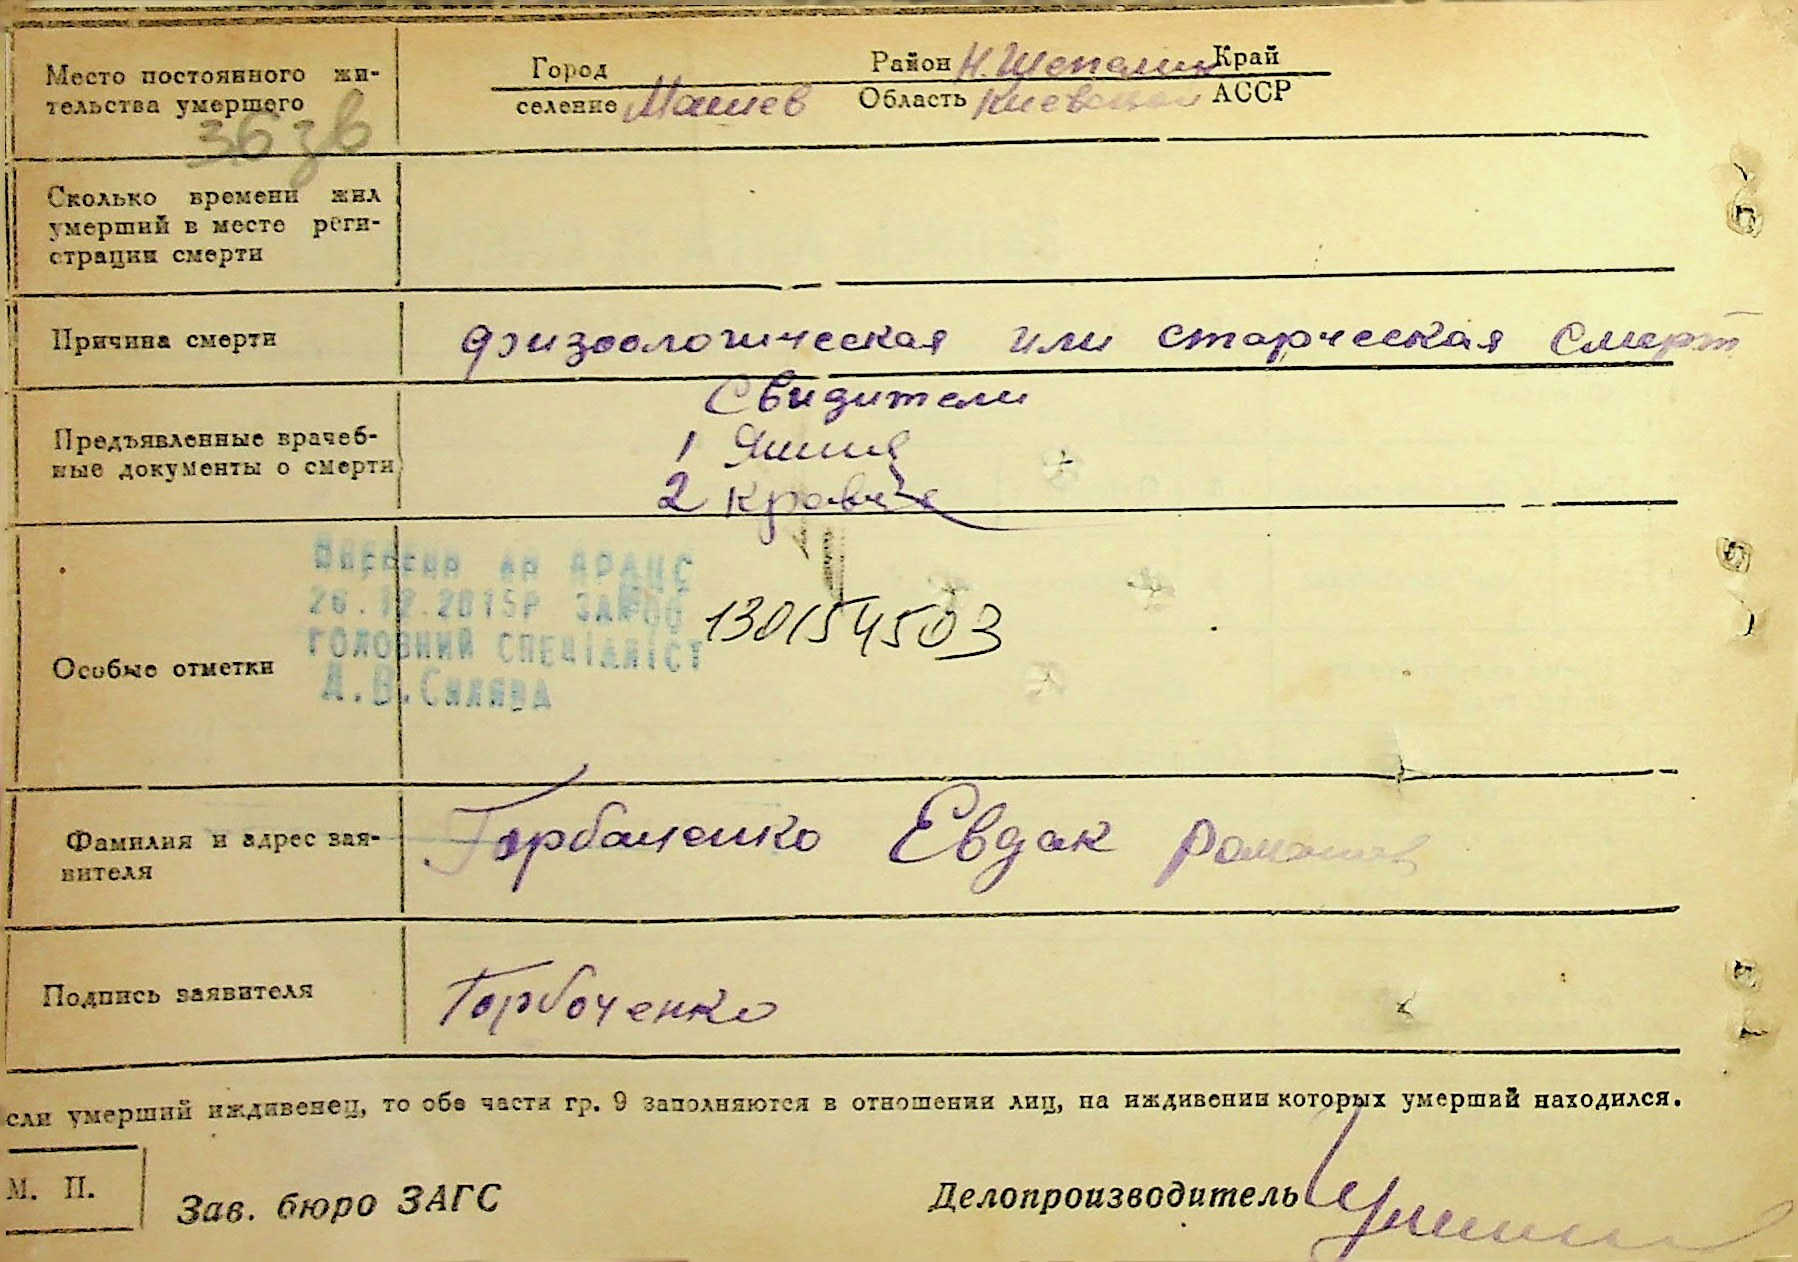 Место постоянного жи-
тельства умершего
36 зв
Город
Район Н. Шепелич Край
селение Машев
Область Киевской АССР
Сколько времени жил
умерший в месте реги-
страции смерти
Причина смерти
физоологическая или старческая смерт
Свидители
Предъявленные врачеб-
ные документы о смерти
1
2 Кравче
Особые отметки
26.12.2015Р
ГОЛОВНИЙ СПЕЦІАЛІСТ
130154503
Фамилия и адрес зая-
вителя
Горбаченко Евдак Роман
Подпись заявителя
Горбоченко
сли умерший иждивенец, то обе части гр. 9 заполняются в отношении лиц, на иждивении которых умерший находился.
М. П.
Зав. бюро ЗАГС
Делопроизводитель